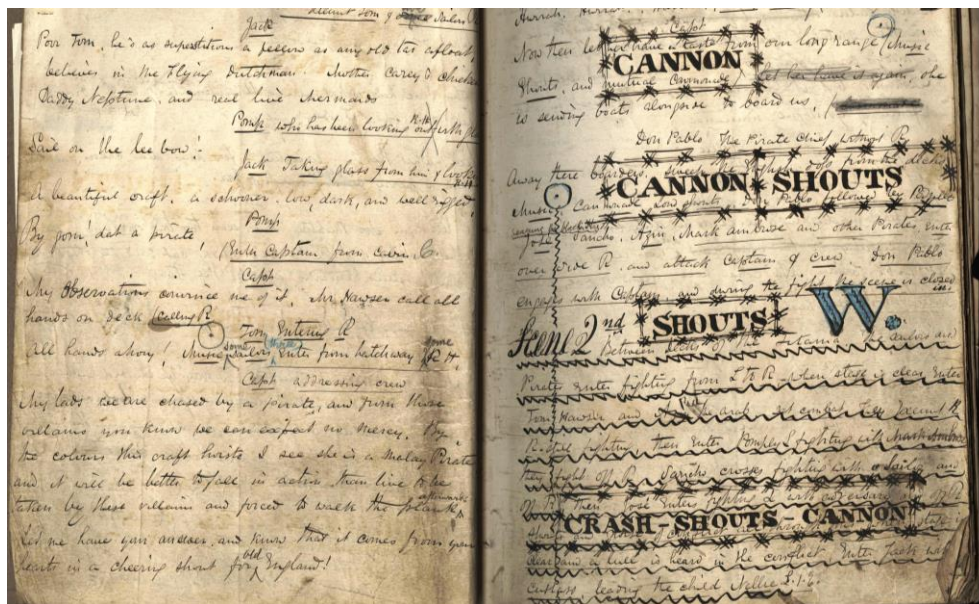 Jack
Poor Tom, he's as superstitious a person as any old tar afloat,
believes in the Flying Dutchman. Mother Carey's chickens
Daddy Neptune. and real live Mermaids
Pomp who has been looking out with
Sail on the lee bow!
Jack Taking glass from him & looks
A beautiful craft. a schooner, low, dark, and well rigged,
Pomp
By gom, dat a pirate!
(Enter Captain from cabin, C.
Capt
My observations convince me of it. Mr Hawser call all
hands on deck (calling R
Tom Entering R
All hands ahoy! Music some Sailors three Enter from hatchway some R H
Capt addressing crew
My lads we are chased by a pirate, and from those
villains you know we can expect no mercy. By
the colours this craft hoists I see she is a Malay Pirate
and it will be better to fall in action than live to be
taken by these villains and forced to walk the plank afterwards
Let me have your answer, and know that it comes from your
hearts in a cheering shout for old England!
Capt
Now then let us have a taste from our long range, Music
CANNON
Shouts, and mutual Cannonade) Let her have it again, she
is sending boats alongside to board us.
Don Pablo The Pirate Chief without R
Away there boarders, sweep the from the decks
CANNON SHOUTS
Music, Cannonade, loud shouts. Don Pablo followed by
José, Sancho, Azim, Mark Ambrose and other Pirates Enter
over side R. and attack Captain & crew. Don Pablo
engages with Captain, and during the fight the scene is closed in.
W.
Scene 2nd
SHOUTS
Between decks of the
Pirates enter fighting from L to R - when stage is clear Enter
Tom Hawser and
R. still fighting then Enter Pompey L fighting with Mark Ambrose
they fight off R. Sancho crosses fighting with a Sailor and
off R then José Enters fighting L with
CRASH-SHOUTS-CANNON
clear and a lull is heard in the conflict. Enter Jack with
Cutlass, leading the child Nellie L.1.E.